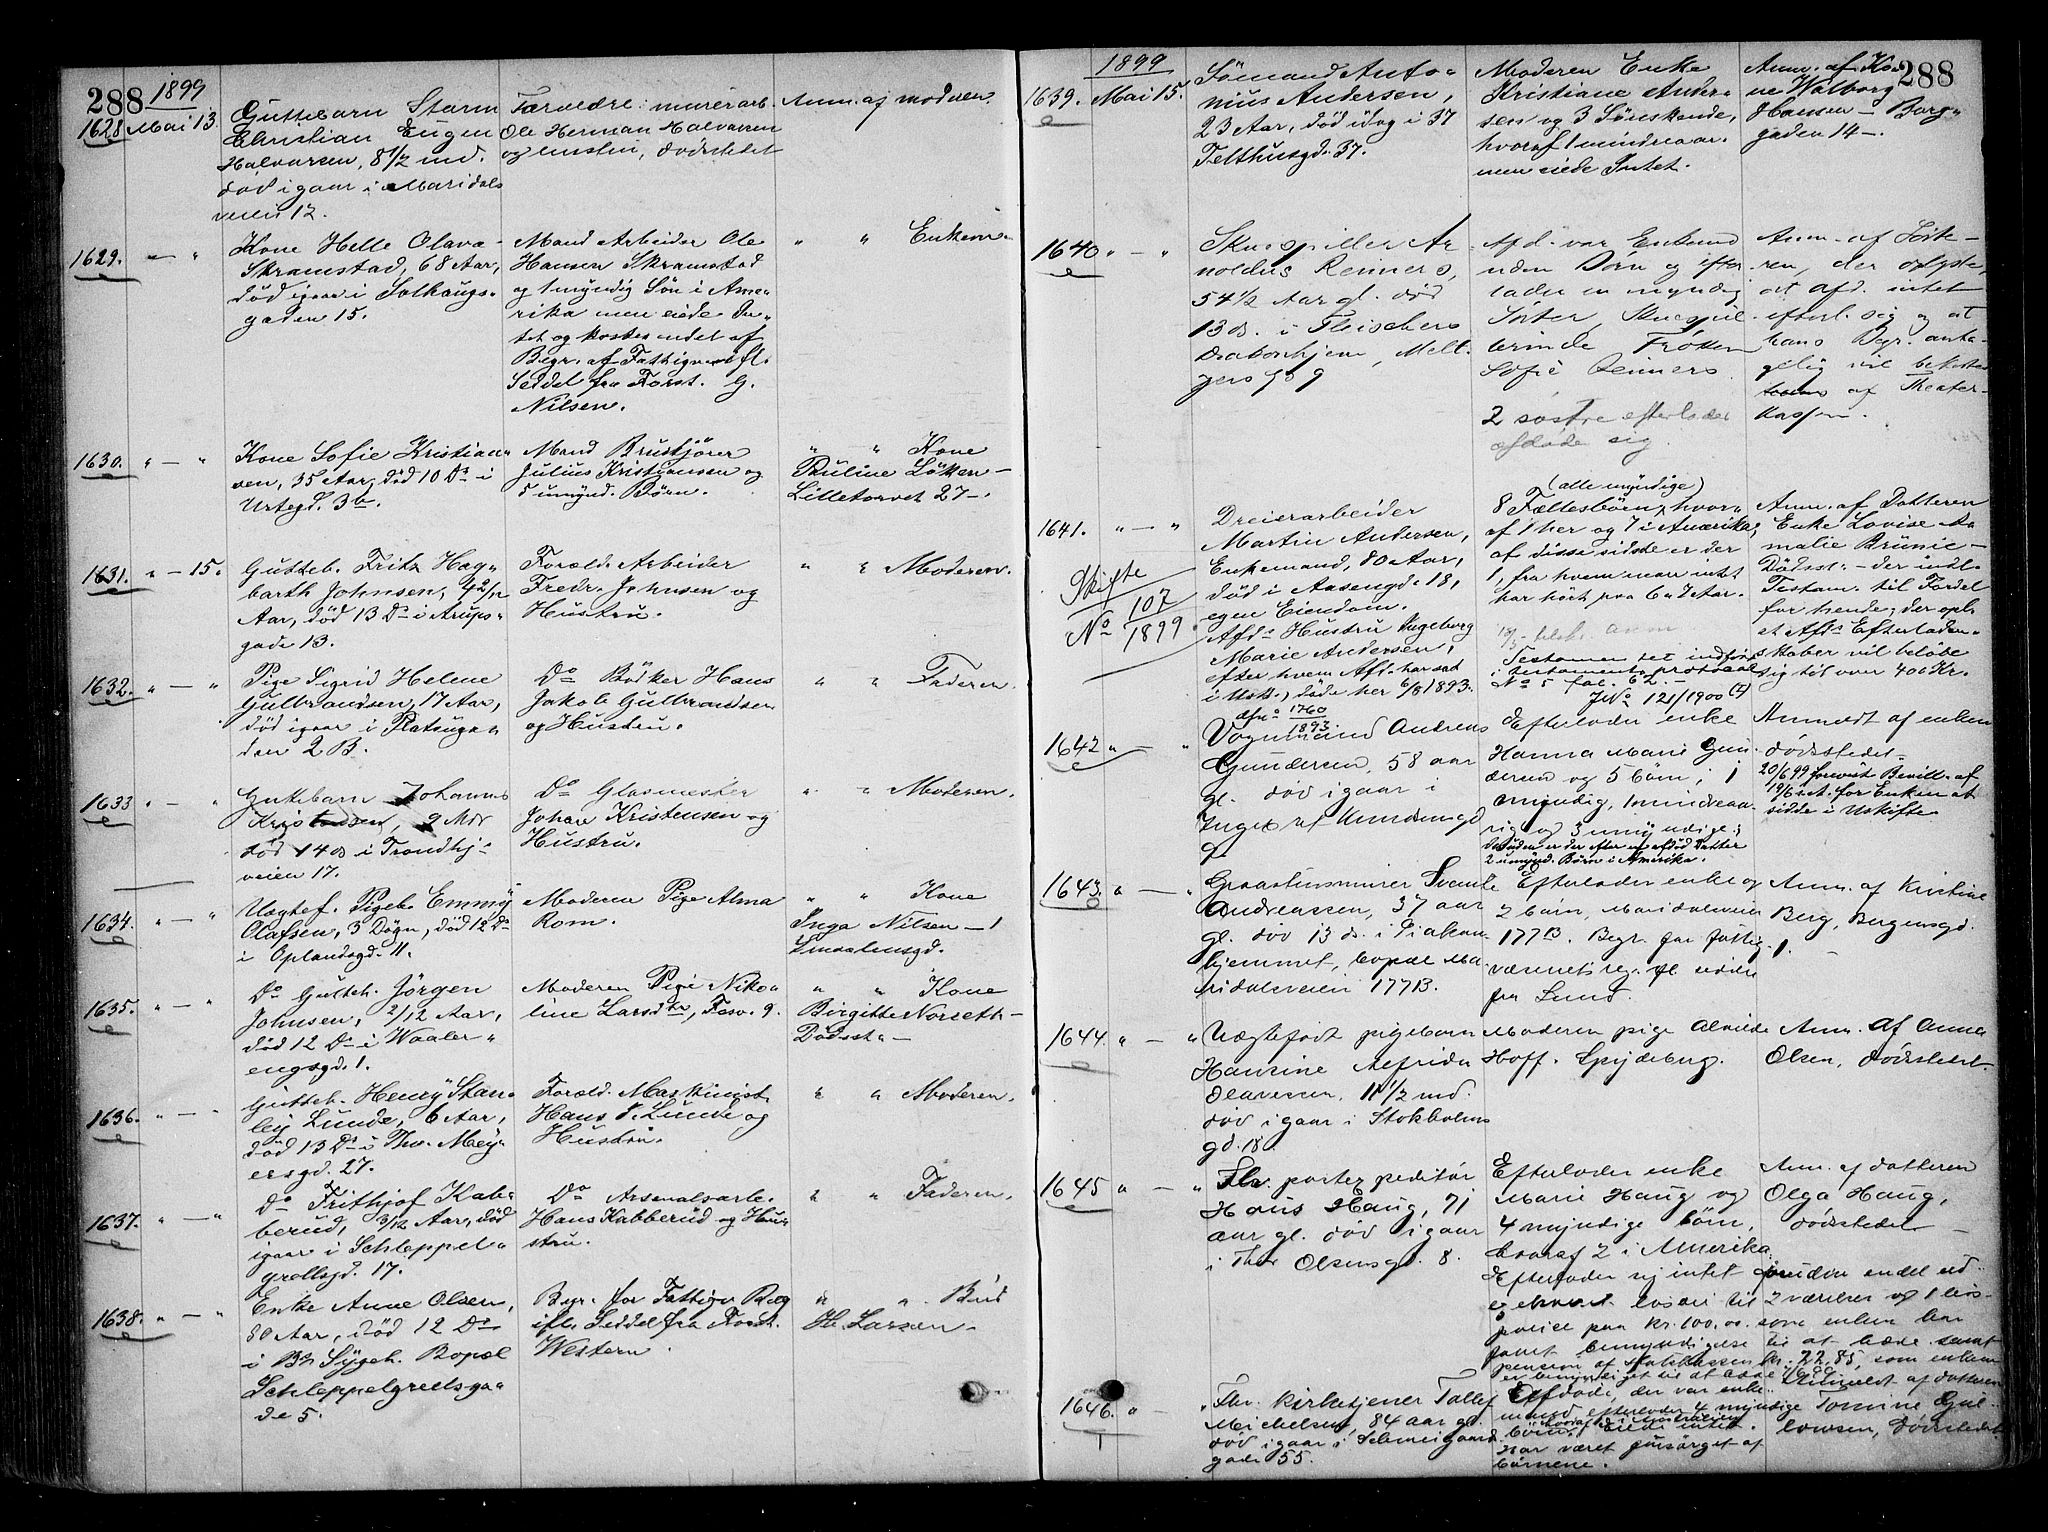 288
1899
1628 Mai 13.
Guttebarn Sturm
Christian Eugen
Halvorsen, 8 1/2 md.
død igaar i Maridals
veien 12.
Forældre: murerarb.
Ole Herman Halvorsen
og hustru, dødsstedet
Anm. af moderen.
1629. — "
Kone Helle Olava
Skramstad, 68 Aar,
død igaar i Solhaugs-
gaden 15.
Mand Arbeider Ole
Hansen Skramstad
og 1 myndig Søn i Ame-
rika men eiede In-
tet og kostes
Begr. af Fattigv. ifl.
Seddel fra Forst. G.
Nilsen.
" " Enkem.
1630. " — "
Kone Sofie Kristian-
sen, 35 Aar, død 10 Ds i
Urtegd. 3b.
Mand
Julius Kristiansen og
5 umynd. Børn.
" " Kone
Pauline Løken —
Lilletorvet 27 —.
1631. " — 15. "
Gutteb. Fritz Hag-
barth Johnsen, 4 2/12
Aar, død 13 Ds i Arups-
gade 13.
Foræld. Arbeider
Fredr. Johnsen og
Hustru.
" " Moderen.
1632. " — "
Pige Sigrid Helene
Gulbrandsen, 17 Aar,
død igaar i Platouga-
den 2 B.
Do Bødker Hans
Jakob Gulbrandsen
og Hustru.
" " Faderen.
1633 " — "
Guttebarn Johannes
Kristensen, 9 Mdr
død 14 ds i Trondhj-
veien 17.
Do Glasmester
Johan Kristensen og
Hustru.
" " Moderen.
1634. " — "
Uægtef. Pigeb. Emmy
Olafsen, 3 Døgn, død 12 Ds
i Oplandsgd. 11.
Moderen Pige Alma
Rom.
" " Kone
Inga Nilsen — 1
Smaalensgd.
1635. " — "
Do Gutteb. Jörgen
Johnsen, 2/12 Aar,
død 12 Ds i Vaaler-
engsgd. 1.
Moderen Pige Niko-
line Larsdtr,
" " Kone
Birgitte Norseth —
Dødsst. —
1636. " — "
Gutteb. Henry Stan-
ley Lunde, 6 Aar,
død 13 Ds i Thv. Mey-
ersgd. 27.
Foræld. Maskinist
Hans P. Lunde og
Hustru.
" " Moderen.
1637. " — "
Do Frithjof Kab-
berud, 3/12 Aar, død
igaar i Schleppe-
grellsgd. 17.
Do Arsenalsarb.
Hans Kabberud og Hu-
stru.
" " Faderen.
1638. " — "
Enke Anne Olsen,
80 Aar, død 12 Ds
i Bs Sygeh. Bopæl
Schleppelgrellsga-
de 5.
Begr. for Fattigv. Regn.
ifl. Seddel fra Forst.
Western.
" " Bud
H. Larsen —
288
1899
1639. Mai 15.
Sømand Anto-
nius Andersen,
23 Aar, død idag i 37
Telthusgd. 37.
Moderen Enke
Kristiane Ander-
sen og 3 Søskende,
hvoraf 1 mindreaar.
men eiede Intet.
Anm. af Ko-
ne Walborg
Hansen — Borg-
gaden 14 —.
1640. — "
Skuespiller Ar-
noldus Reimers,
54 1/2 Aar gl. død
13 ds. i Fleischers
Diakonhjem, Melt-
zers gd 9
Afd. var Enkemd
uden Børn og efter-
lader en myndig
Søster, Skuespil-
lerinde Frøken
Sofie Reimers
2 søstre efterlader
afdøde sig
Anm. af Søste-
ren, der oplyste
at Afd. intet
efterl. sig og at
hans Begr. anta-
gelig vil bekostes
af Theater-
kassen.
1641. " — "
Skifte
No 107/1899.
Dreierarbeider
Martin Andersen,
Enkemand, 80 Aar,
død i Aasengd. 18,
egen Eiendom.
Afds Hustru Ingeborg
Marie Andersen,
efter hvem Afd. har sad
i Usk., døde her 6/8 1893.
1760/1893.
(alle myndige)
8 Fællesbørn, hvor-
af 1 her og 7 i Amerika,
af disse sidste er der
1, fra hvem man intet
har hørt paa 6 a 7 Aar.
Testamentet indført
i testamentsprotocol
No 5 fol. 62. —
JNo 121/1900
Anm. af Datteren
Enke Lovise A-
malie Brünie —
Dødsst. — der indl.
Testam. til Fordel
for hende, der opl.
at Afds Efterladen-
skaber vil beløbe
sig til over 400 Kr.
1642 " — "
Vognmand Andreas
Gundersen, 58 aar
gl. død igaar i
Efterlader enke
Hanna Marie Gun-
dersen og 5 børn, 1
myndig, 1 mindreaa-
rig og 3 umyndige;
desuden er der efter en afdød Datter
2 umynd. Børn i Amerika.
Anmeldt af enken
dødsstedet —
20/6 99 forevist Bevill. af
19/6 s.A. for Enken at
sidde i Uskifte
1643. " — "
Graastensmurer Svante
Andreassen, 37 aar
gl. død 13 ds. i Diakon-
hjemmet, bopæl Ma-
ridalsveien 177B.
Efterlader enke og
2 børn, Maridalsveien
177B. Begr. for fattig-
væsenets reg. fl. seddel
fra Lund.
Anm. af Kristine
Berg, Bergensgd.
1. —
1644. " — "
Uægtefødt pigebarn
Hansine Alfrida
Olavesen, 11 1/2 md.
død igaar i Stokholms
gd. 18.
Moderen pige Alvilde
Hoff. Spydeberg.
Anm. af Anna
Olsen, dødsstedet —
1645 " — "
Flv. postexpeditør
Hans Haug, 71
aar gl. død igaar
i Thv Olsensgd. 8.
Efterlader enke
Marie Haug og
4 myndige børn,
hvoraf 2 i Amerika.
Efterlader sig intet uden endel ud-
til 2 værelser og 1 livs-
police paa kr. 100.00. som enken har
faaet bemyndigelse til at hæve samt
pension af Statskassen kr. 22.85, som enken
er bemyndiget til at hæve
Anm. af datteren
Olga Haug,
dødsstedet —
1646. " —
Flv. kirketjener Tollef
Michelsen, 84 aar gl.
død igaar i Schweigaards
gade 55.
Afdøde, der var enke-
mand efterlader 4 myndige
børn, Eiede intet.
Har været forsørget af
børnene.
Anmeldt af datteren
Tomine Gul-
dødsstedet